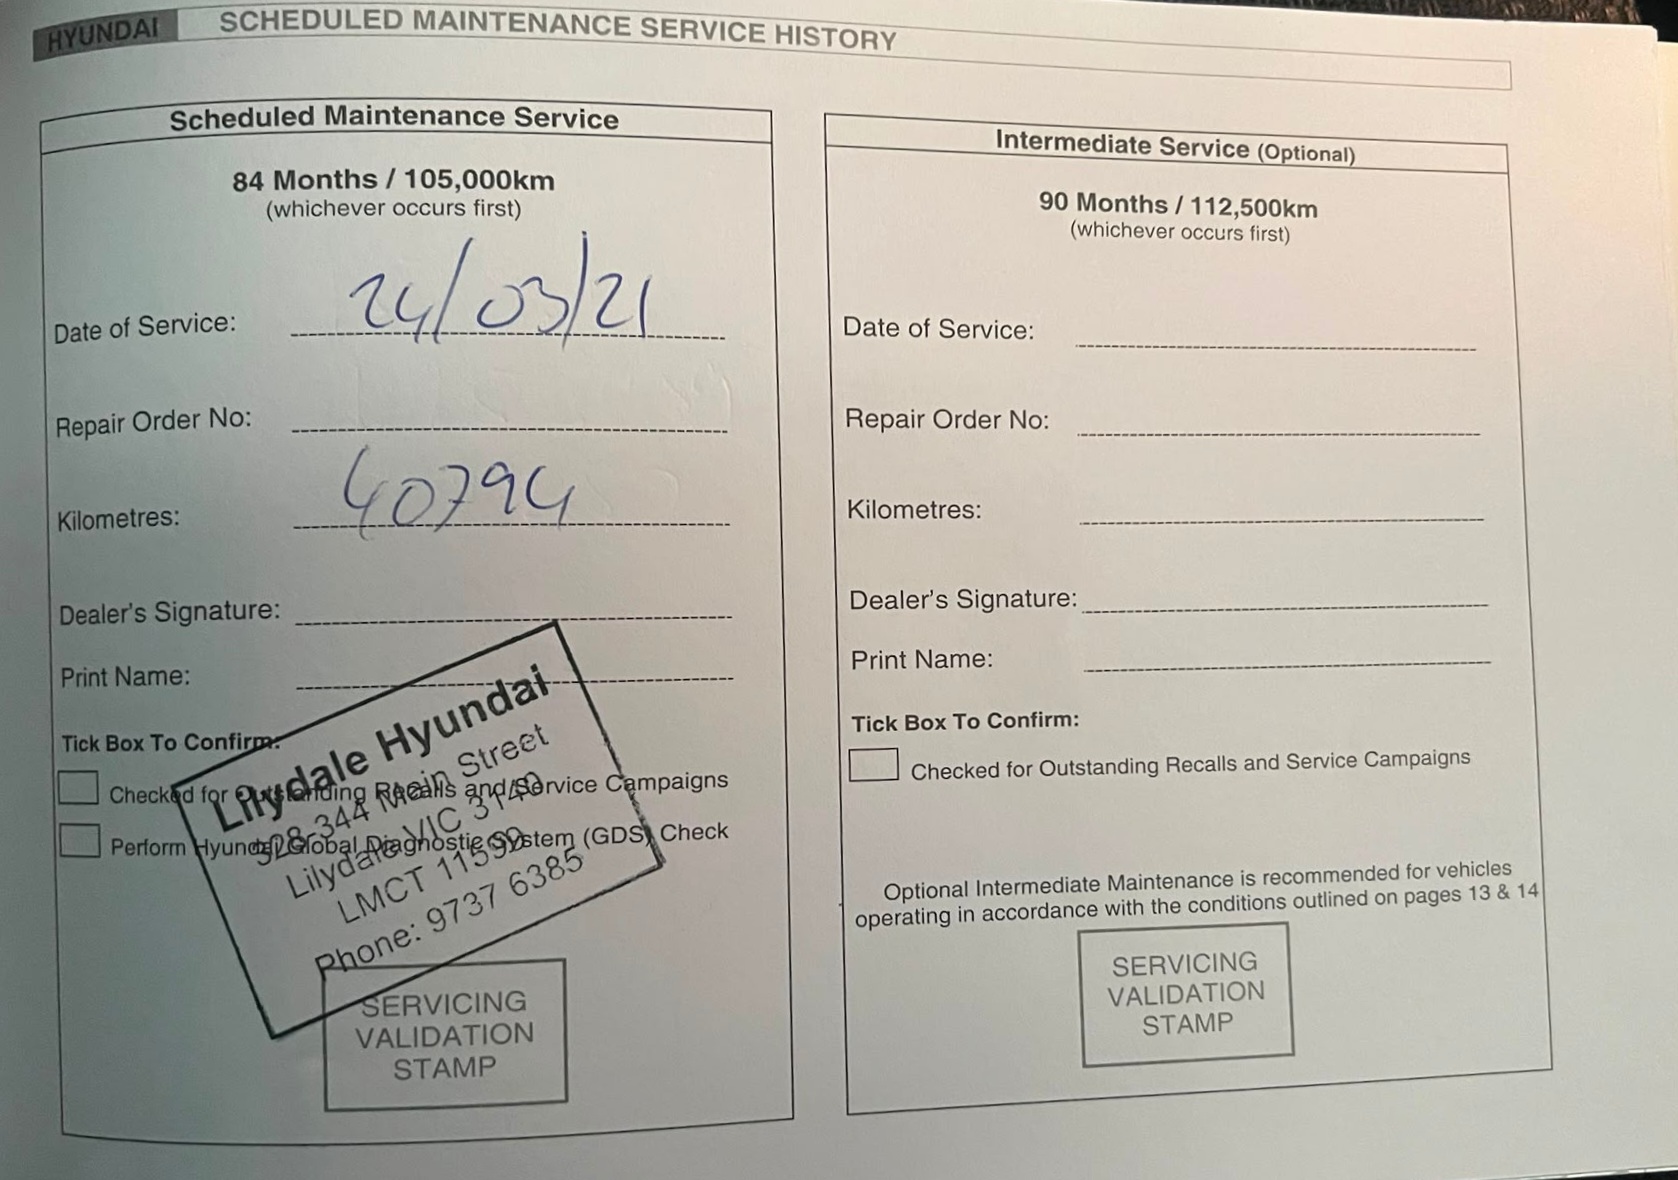 HYUNDAI
SCHEDULED MAINTENANCE SERVICE HISTORY
Scheduled Maintenance Service
84 Months / 105,000km
(whichever occurs first)
Date of Service: 24/03/21
Repair Order No:
Kilometres: 40794
Dealer's Signature:
Print Name:
Tick Box To Confirm:
Checked for Outstanding Recalls and Service Campaigns
Perform Hyundai Global Diagnostic System (GDS) Check
Lilydale Hyundai
328-344 Main Street
Lilydale VIC 3140
LMCT 11599
Phone: 9737 6385
SERVICING
VALIDATION
STAMP
Intermediate Service (Optional)
90 Months / 112,500km
(whichever occurs first)
Date of Service:
Repair Order No:
Kilometres:
Dealer's Signature:
Print Name:
Tick Box To Confirm:
Checked for Outstanding Recalls and Service Campaigns
Optional Intermediate Maintenance is recommended for vehicles
operating in accordance with the conditions outlined on pages 13 & 14
SERVICING
VALIDATION
STAMP